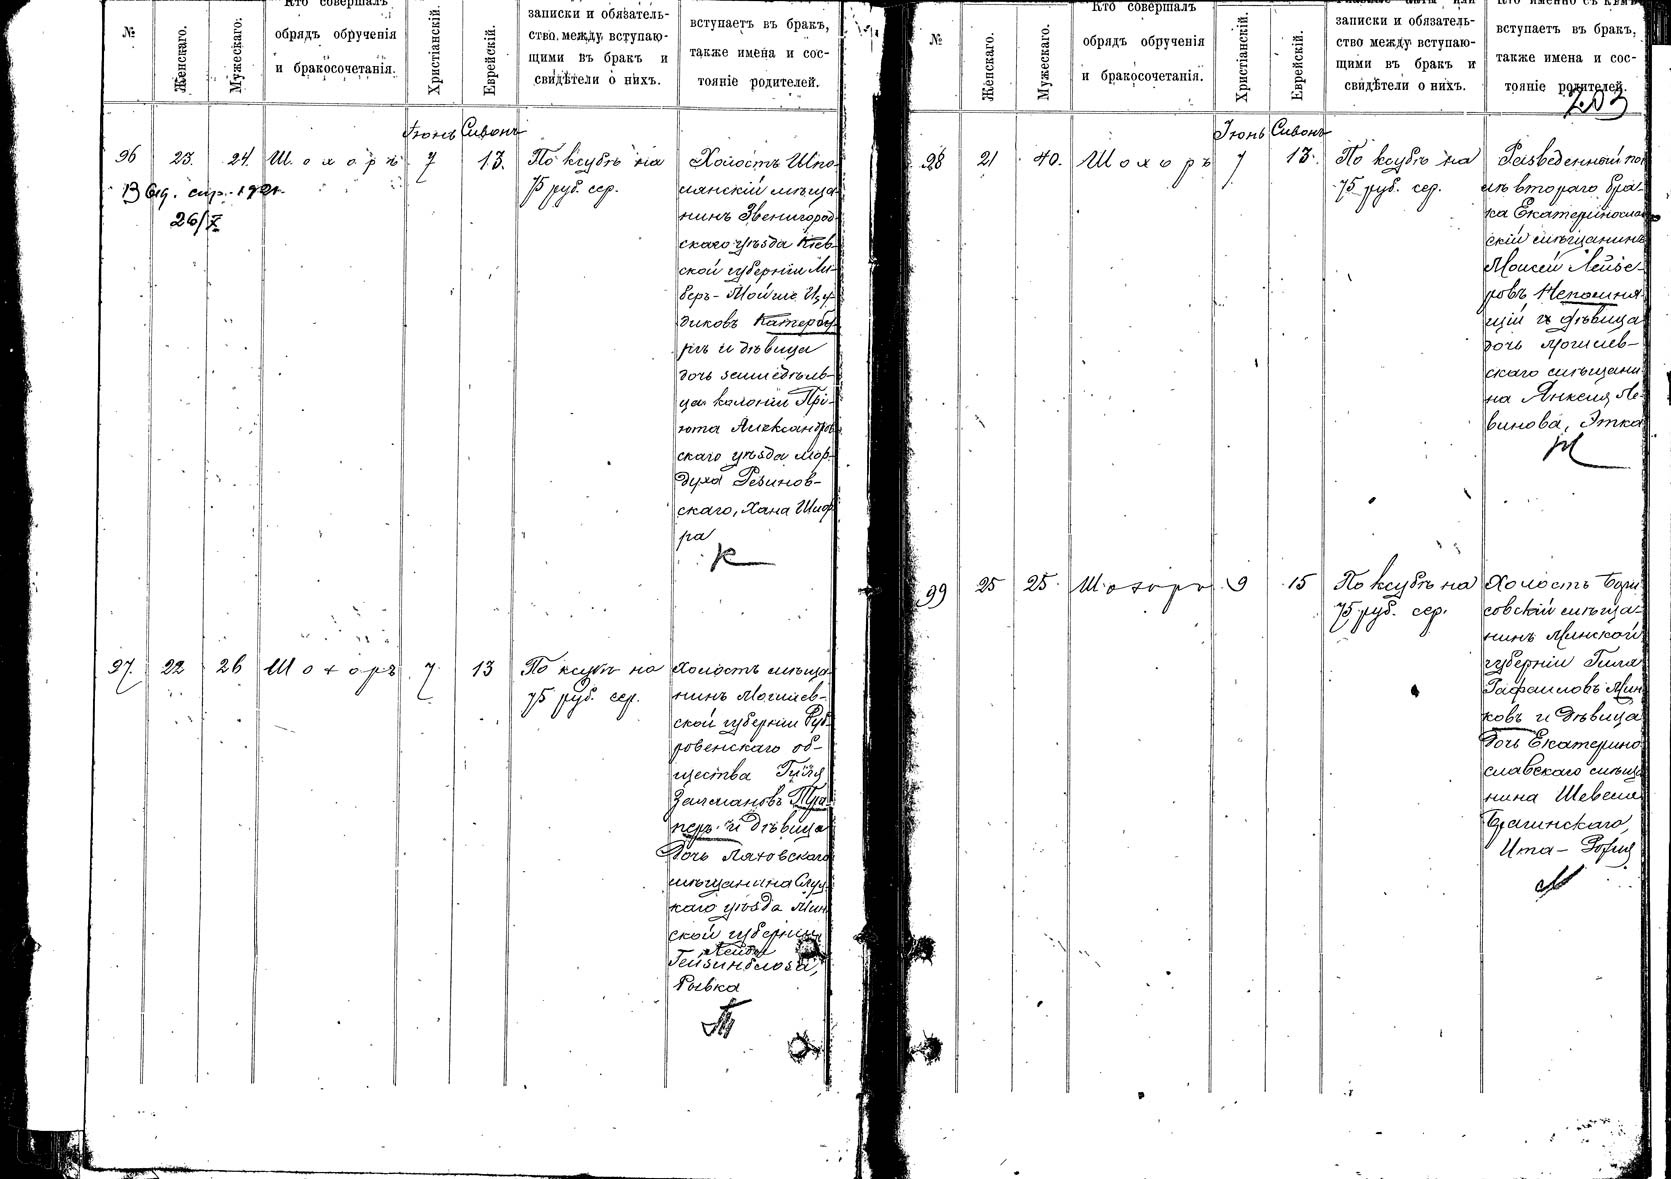 №
Женскаго.
Мужескаго:
Кто совершалъ
обрядъ обрученія
и бракосочетанія.
Христіанскій.
Еврейскій.
записки и обязатель-
ство между вступаю-
щими въ бракъ и
свидѣтели о нихъ.
вступаетъ въ бракъ,
также имена и сос-
тояніе родителей.
Іюнь Сивонъ
96 23. 24. Шохоръ 7 13. По ксубѣ на
75 руб. сер.
Холостъ Шпо-
лянскій мѣща-
нинъ Звенигород-
скаго уѣзда Кіев-
ской губерніи Ли-
беръ-Мойше Ицу-
диковъ Катербу-
ргъ и дѣвица
дочь земледѣль-
ца колоніи Прі-
юта Александров-
скаго уѣзда Мор-
духа Резинов-
скаго, Хана Шиф-
ра
К
26/X
97. 22 26 Шохоръ 7 13 По ксубѣ на
75 руб. сер.
Холостъ мѣща-
нинъ Могилев-
ской губерніи Дуб-
ровенскаго об-
щества
Залмановъ Тра-
перъ и дѣвица
дочь Ляховскаго
мѣщанина Слуц-
каго уѣзда Мин-
ской губерніи
Лейбы
Гейзинблоза,
Рывка
Т
№
Женскаго.
Мужескаго.
Кто совершалъ
обрядъ обрученія
и бракосочетанія.
Христіанскій.
Еврейскій.
записки и обязатель-
ство между вступаю-
щими въ бракъ и
свидѣтели о нихъ.
Кто именно съ кѣмъ
вступаетъ въ бракъ,
также имена и сос-
тояніе родителей.
203
Іюнь Сивонъ
98 21 40. Шохоръ 7 13. По ксубѣ на
75 руб. сер.
Разведенный пос
лѣ втораго бра-
ка Екатеринослав
скій мѣщанинъ
Моисей Лейзе-
ровъ Непомня-
щій и дѣвица
дочь Могилев-
скаго мѣщани-
на Янкеля Ле-
винова, Этка
99 25 25. Шохоръ 9 15 По ксубѣ на
75 руб. сер.
Холостъ Бори
совскій мѣща-
нинъ Минской
губерніи Гиля
Рафаиловъ Мин-
ковъ и дѣвица
дочь Екатерино
славскаго мѣща
нина Шевеля
Брагинскаго,
Ита-
М